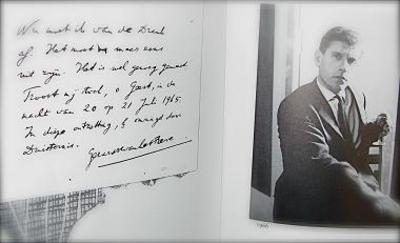 Nu moet ik van de Drank
af. Het moet nu maar eens
uit zijn. Het is wel genoeg geweest
Troost mij toch, o Geest, in de
nacht van 20 op 21 Juli 1965.
In diepe ontzetting, & omringd door
Duisternis.
Gerard Kornelis van het Reve